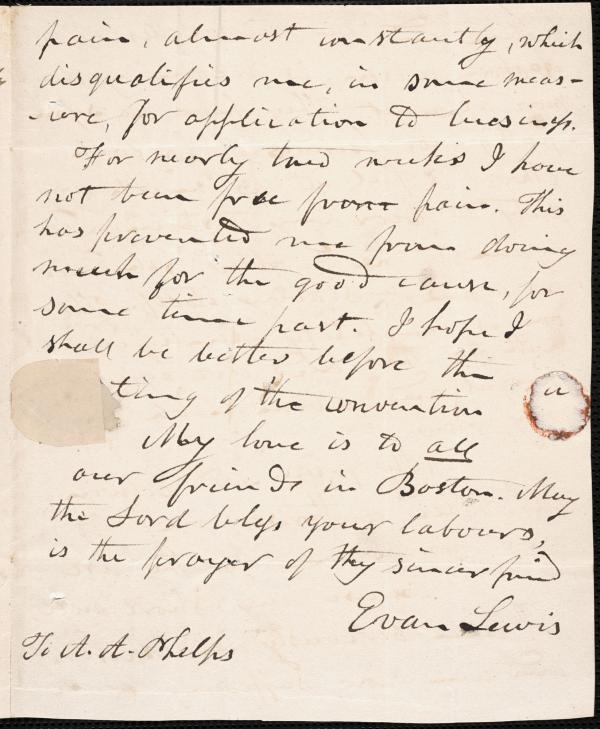 pain, almost constantly, which
disqualifies me, in some meas-
ure, for application to business.
For nearly two weeks I have
not been free from pain. This
has prevented me from doing
much for the good cause, for
some time past. I hope I
shall be better before the
ting of the convention
My love is to all
our friends in Boston. May
the Lord bless your labours,
is the prayer of thy sincere friend
Evan Lewis
To A. A. Phelps